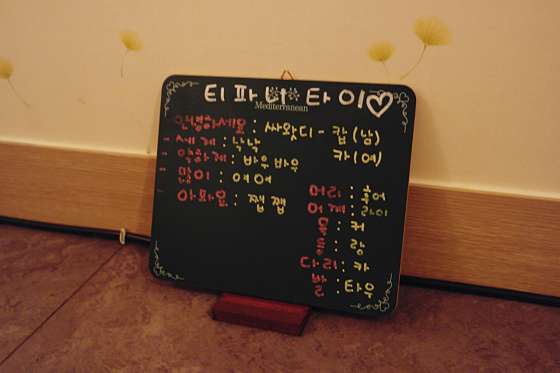 티파니 타이♡
Mediterranean
안녕하세요 : 싸왓디 - 캅 (남)
카 (여)
- 세게 : 낙낙
- 약하게 : 바우 바우
- 많이 : 여여
아파요 : 쨉 쨉
머리 : 후어
어깨 : 라이
목 : 커
등 : 랑
다리 : 카
발 : 타우